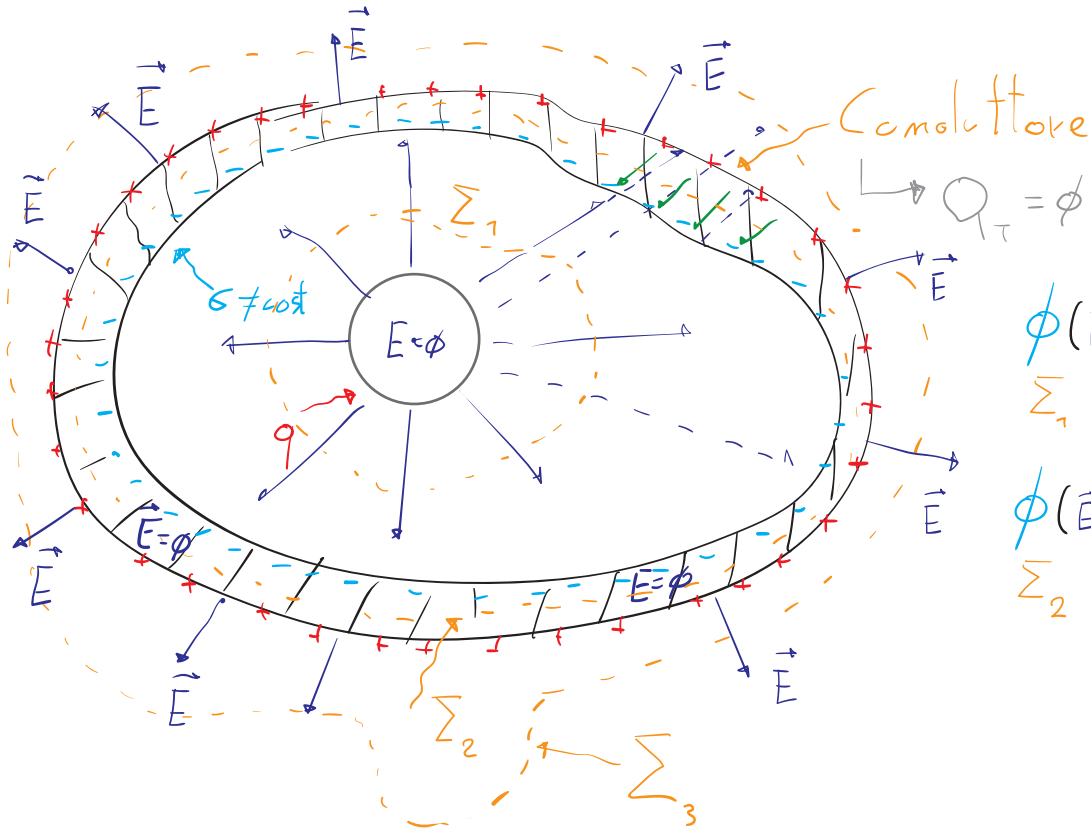 E⃗
E⃗
E⃗
E⃗
Conduttore
Q_T = ϕ
Σ₁
σ ≠ cost
E⃗
E = ϕ
q
ϕ(
Σ₁
E⃗
ϕ(E⃗
Σ₂
E⃗ = ϕ
E⃗ = ϕ
E⃗
E⃗
E⃗
Σ₂
Σ₃